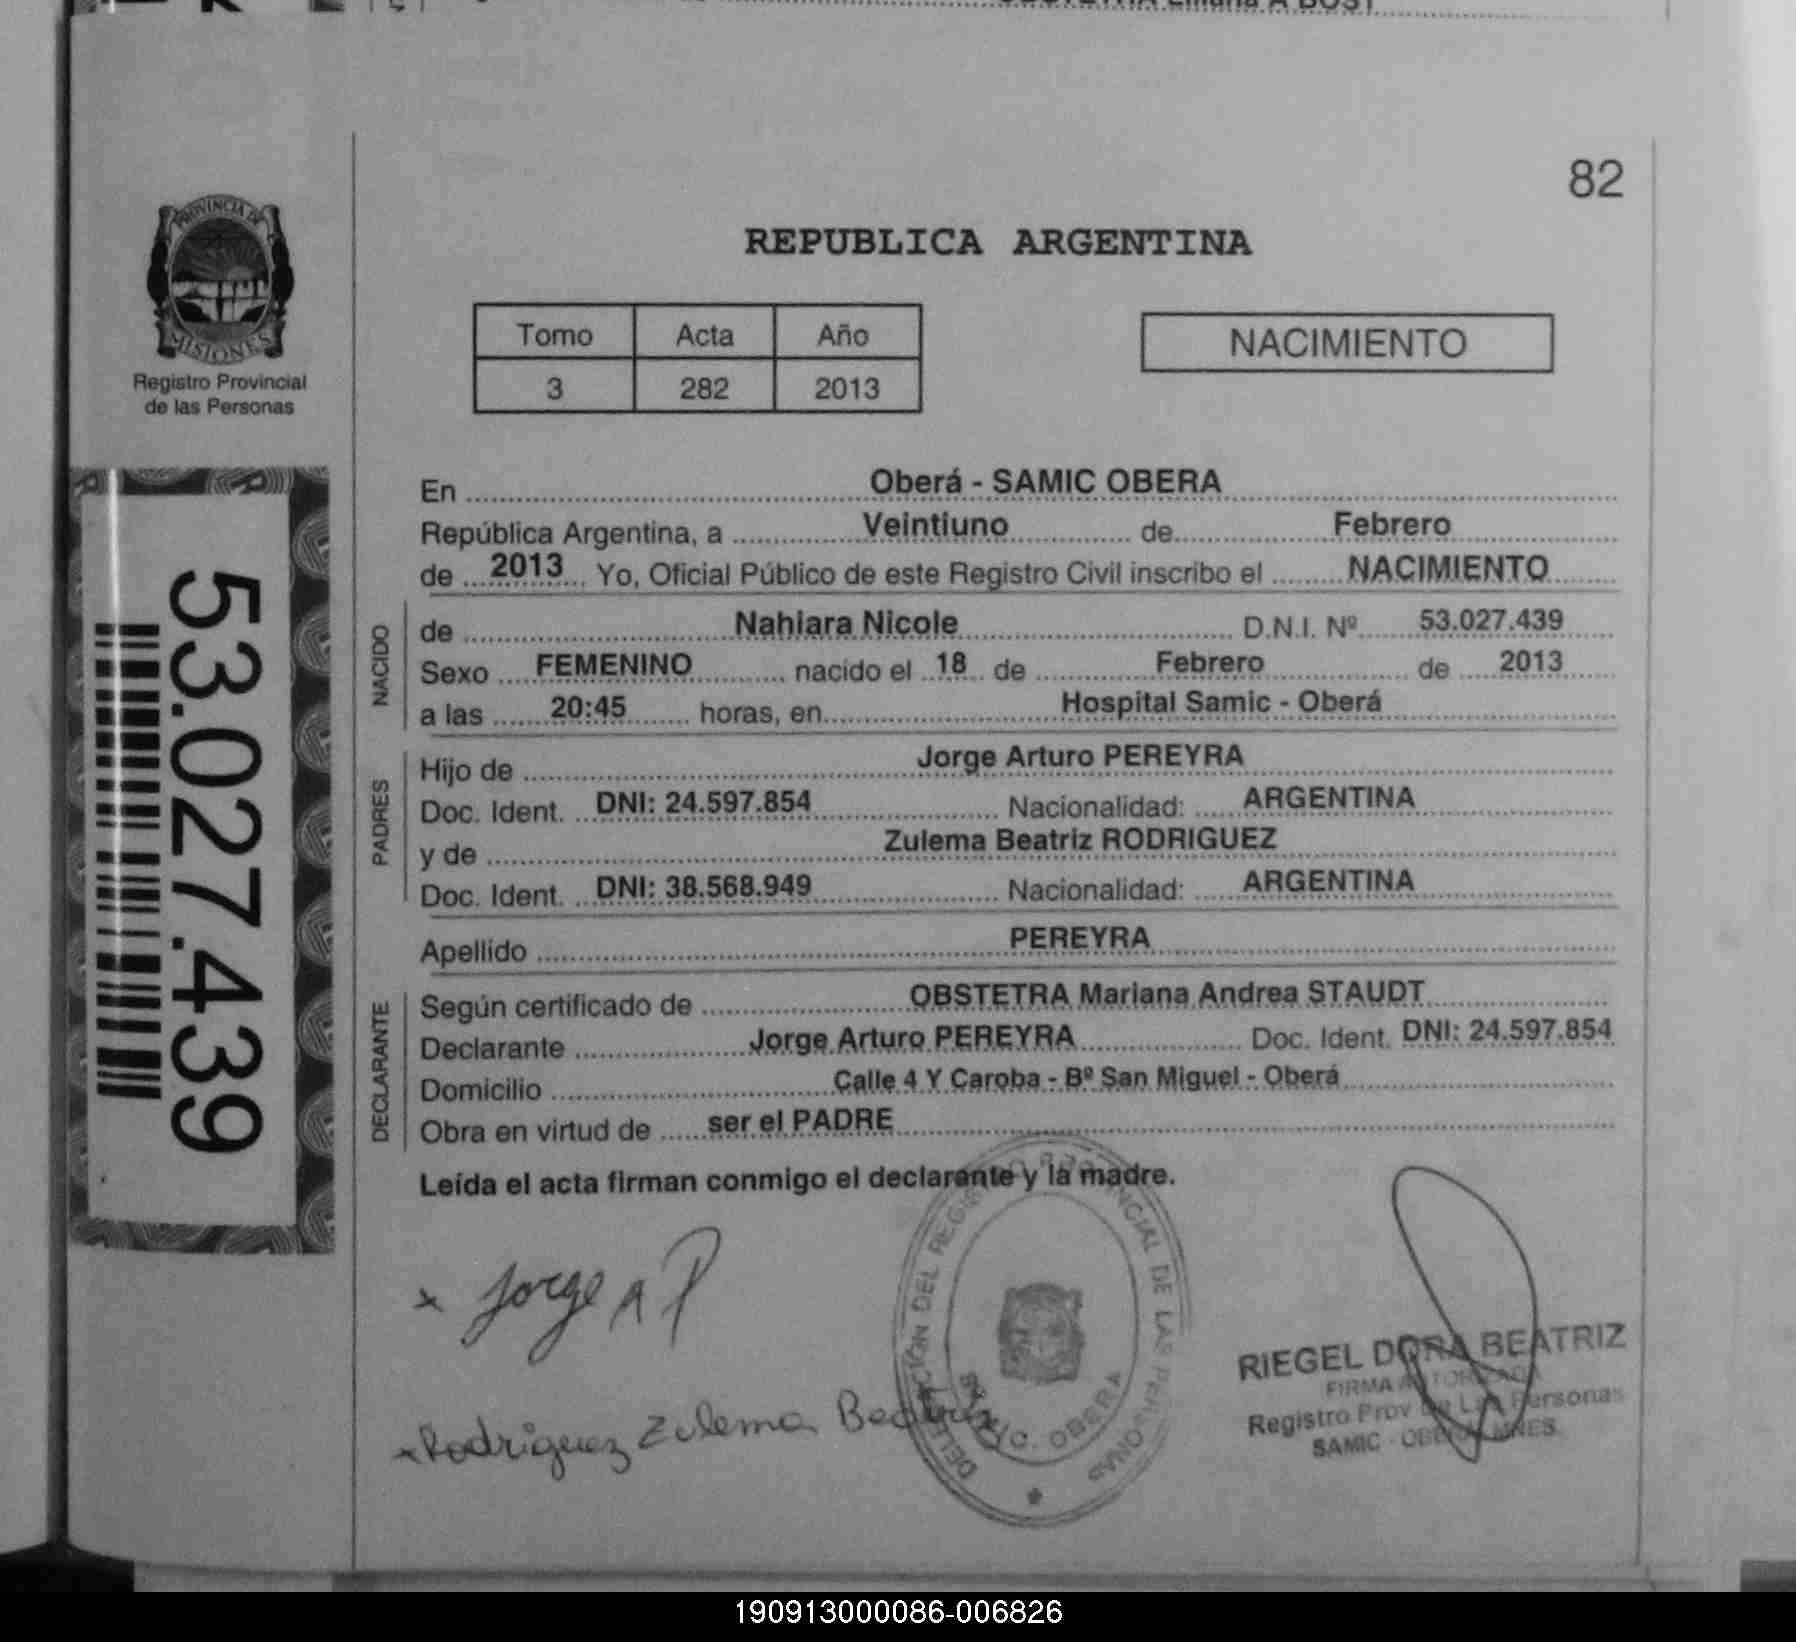 OBSTETRA Liliana A BOST
82
PROVINCIA DE
MISIONES
Registro Provincial
de las Personas
REPUBLICA ARGENTINA
Tomo Acta Año
3 282 2013
NACIMIENTO
53.027.439
En Oberá - SAMIC OBERA
República Argentina, a Veintiuno de Febrero
de 2013 Yo, Oficial Público de este Registro Civil inscribo el NACIMIENTO
NACIDO
de Nahiara Nicole D.N.I. Nº 53.027.439
Sexo FEMENINO nacido el 18 de Febrero de 2013
a las 20:45 horas, en Hospital Samic - Oberá
PADRES
Hijo de Jorge Arturo PEREYRA
Doc. Ident. DNI: 24.597.854 Nacionalidad: ARGENTINA
y de Zulema Beatriz RODRIGUEZ
Doc. Ident. DNI: 38.568.949 Nacionalidad: ARGENTINA
Apellido PEREYRA
DECLARANTE
Según certificado de OBSTETRA Mariana Andrea STAUDT
Declarante Jorge Arturo PEREYRA Doc. Ident. DNI: 24.597.854
Domicilio Calle 4 Y Caroba - Bº San Miguel - Oberá
Obra en virtud de ser el PADRE
Leída el acta firman conmigo el declarante y la madre.
x Jorge A P
x Rodriguez Zulema Beatriz
DELEGACIÓN DEL REGISTRO PROVINCIAL DE LAS PERSONAS
OBERA
RIEGEL DORA BEATRIZ
FIRMA AUTORIZADA
Registro Prov De Las Personas
SAMIC - OBERA MNES.
190913000086-006826